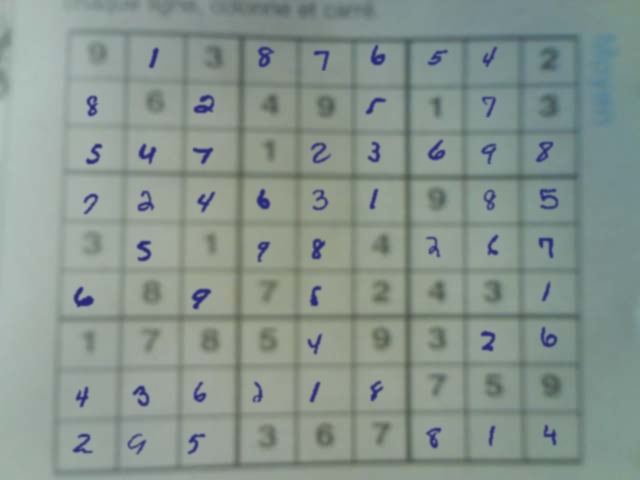 chaque ligne, colonne et carré.
Moyen
9 1 3 8 7 6 5 4 2
8 6 2 4 9 5 1 7 3
5 4 7 1 2 3 6 9 8
7 2 4 6 3 1 9 8 5
3 5 1 9 8 4 2 6 7
6 8 9 7 5 2 4 3 1
1 7 8 5 4 9 3 2 6
4 3 6 2 1 8 7 5 9
2 9 5 3 6 7 8 1 4